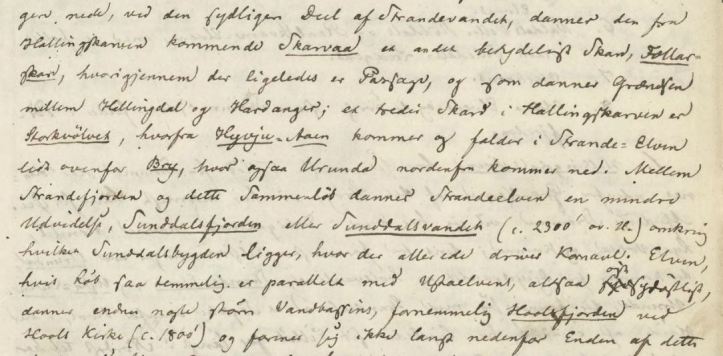 gen nede, ved den sydligen Deel af Strandevandet, danner den fra
Hallingskarven kommende Skarvaa et andet betydeligt Skar, Follar-
skar, hvorigjennem der ligeledes er Passage, og som danner Grændsen
mellem Hallingdal og Hardanger; et tredie Skard i Hallingskarven er
Storkvolvet, hvorfra Hyvju-Aaen kommer og falder i Strande-Elven
lidt ovenfor Bry, hvor ogsaa Urunda nordenfra kommer ned. Mellem
Strandefjorden og dette Sammenløb danner Strandeelven en mindre
Udvidelse, Sunddalsfjorden eller Sunddalsvandet (c. 2300' ov. H.) omkring
hvilken Sunddalsbygden ligger, hvor der allerede drives Kornavl. Elven,
hvis Løb saa temmelig er parallelt med Ustaelvens, altsaa østsydøstligt,
danner endnu nogle større Vandbassins, fornemmelig Holsfjorden ved
Hools Kirke (c. 1800') og forener sig ikke langt nedenfor Enden af dette